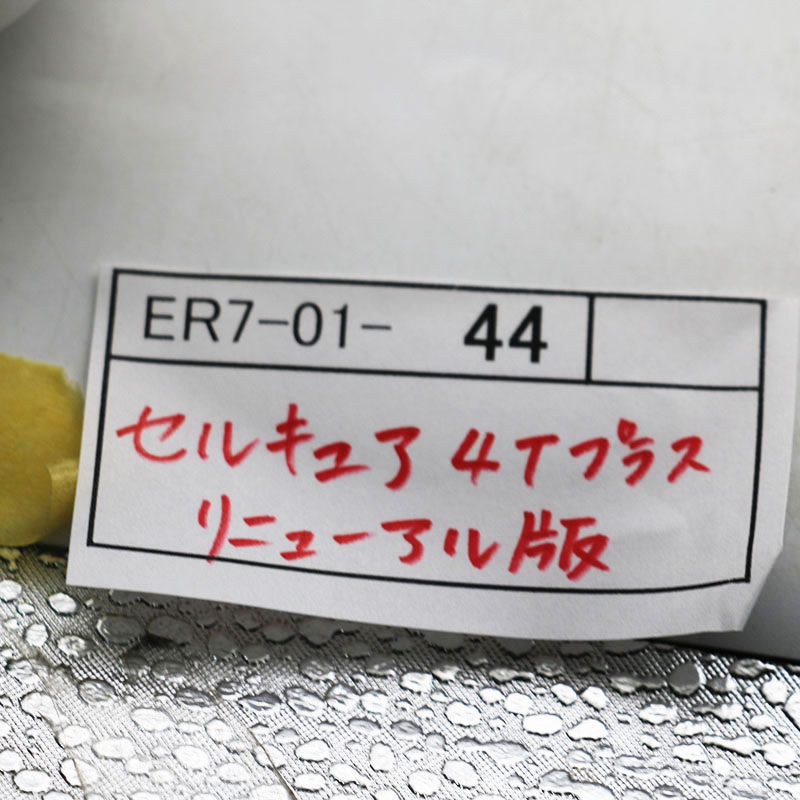 ER7-01- 44
セルキュア 4Tプラス
リニューアル版